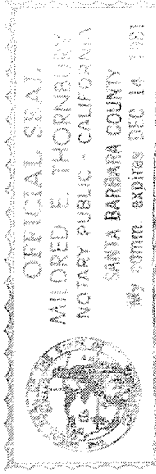 OFFICIAL SEAL
MILDRED E. THORNBURY
NOTARY PUBLIC - CALIFORNIA
SANTA BARBARA COUNTY
My comm. expires DEC 14, 1981